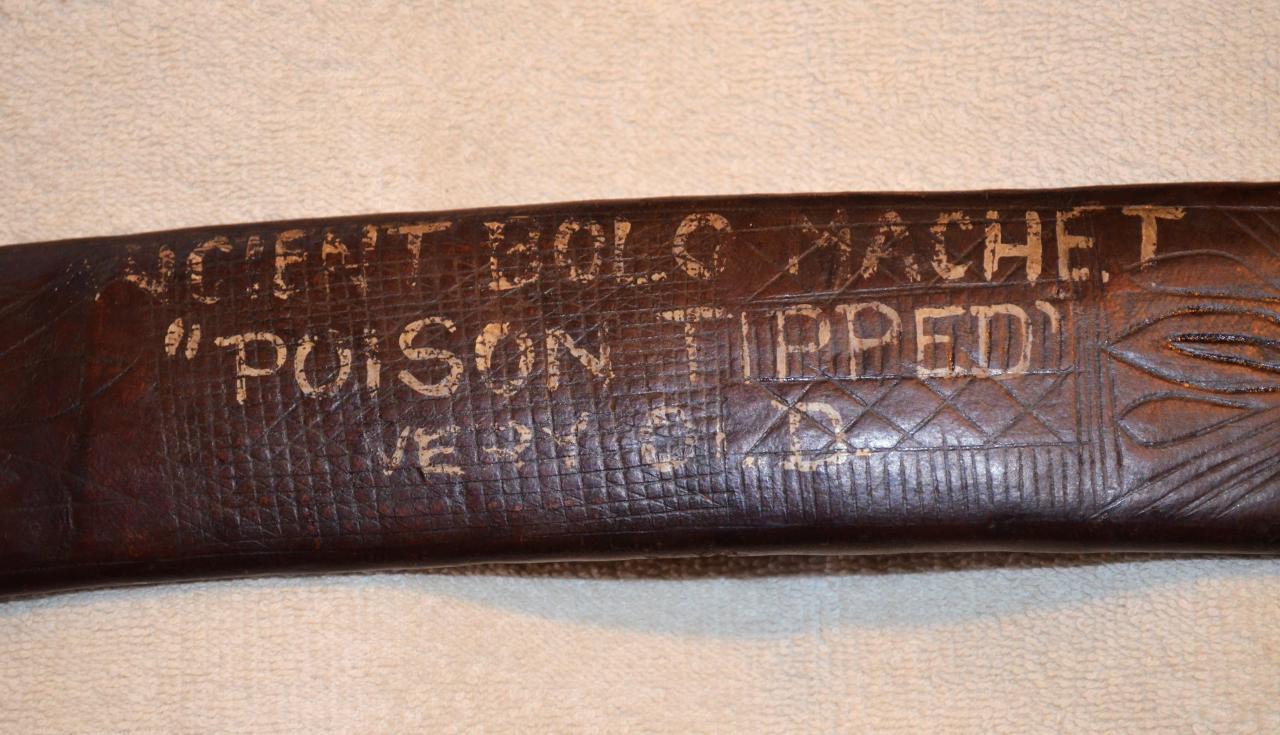 ANCIENT BOLO MACHET
"POISON TIPPED"
VERY OLD.